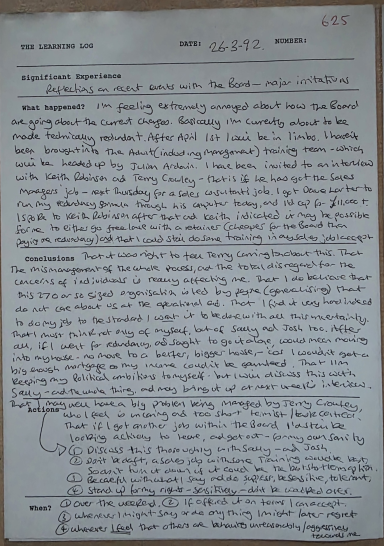 625
THE LEARNING LOG DATE: 26-3-92. NUMBER:
Significant Experience
Reflections on recent events with the Board – major irritations
What happened? I'm feeling extremely annoyed about how the Board
are going about the current changes. Basically I'm currently about to be
made technically redundant. After April 1st I will be in limbo. I haven't
been brought into the Adult (including management) training team - which
will be headed up by Julian Ardain. I have been invited to an interview
with Keith Robinson and Terry Crowley - that is if he has got the Sales
Managers job - next Thursday for a sales consultants job. I got Dave Harter to
run my redundancy formula through his computer today, and it's up for £11,000 +.
I spoke to Keith Robinson after that and Keith indicated it may be possible
for me to either go freelance with a retainer (cheaper for the Board than
paying me redundancy) and that I could still do some training in any sales job I accept
Conclusions That it was right to feel Terry Cunningham about this. That
the mismanagement of the whole process, and the total disregard for the
concerns of individuals is really affecting me. That I do believe that
this 270 or so sized organisation is led by people (generalising) that
do not care about us at the operational end. That I find it very hard indeed
to do my job to the standard I want it to be done with all this uncertainty.
That I must think not only of myself, but of Sally and Josh too. After
all, if I went for redundancy, and sought to go it alone, would mean moving
into my house - no move to a better, bigger house, - cos I wouldn't get a
big enough mortgage as my income couldn't be guaranteed. That I'm
keeping my Political ambitions to myself. But will discuss this with
Sally - and the whole thing, and may bring it up at next week's interview.
That I may well have a big problem being managed by Terry Crowley,
Actions who I feel is uncaring and too short termist / task centred.
That if I got another job within the Board I'd also be
looking actively to leave, and get out - for my own sanity
① Discuss this thoroughly with Sally - and Josh.
② Don't be daft, a sales job with some Training would be best,
So don't turn it down if it could be the best temp option.
③ Be careful with what I say and do suppress, be sensitive, tolerant,
④ Stand up for my rights - sensitively - don't be walked over.
When? ① Over the weekend. ② If offered it on terms I can accept.
③ Whenever I might say or do any thing I might later regret
④ Whenever I feel that others are behaving unreasonably/aggressively
towards me